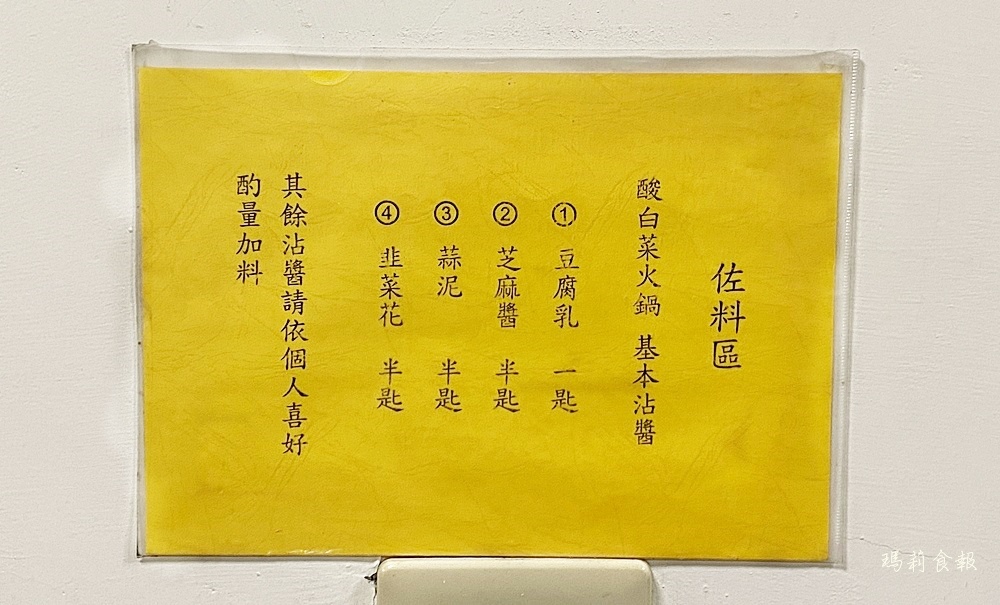 佐料區
酸白菜火鍋 基本沾醬
① 豆腐乳 一匙
② 芝麻醬 半匙
③ 蒜泥 半匙
④ 韭菜花 半匙
其餘沾醬請依個人喜好
酌量加料
瑪莉食報